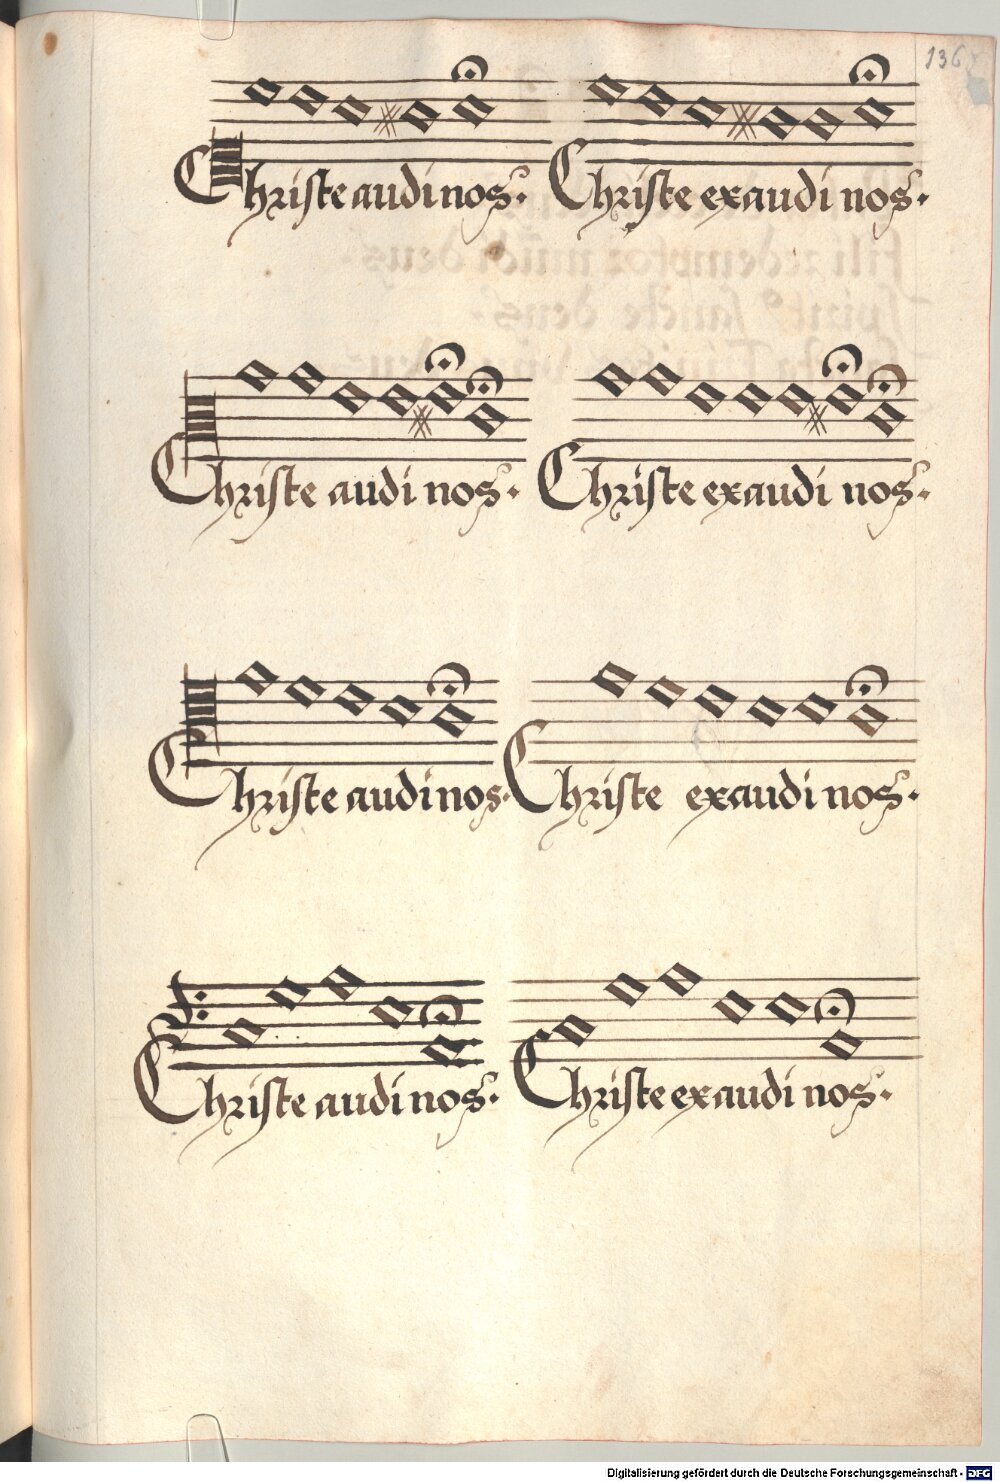 136
Christe audi nos. Christe exaudi nos.
Christe audi nos. Christe exaudi nos.
Christe audi nos. Christe exaudi nos.
Christe audi nos. Christe exaudi nos.
Digitalisierung gefördert durch die Deutsche Forschungsgemeinschaft - DFG